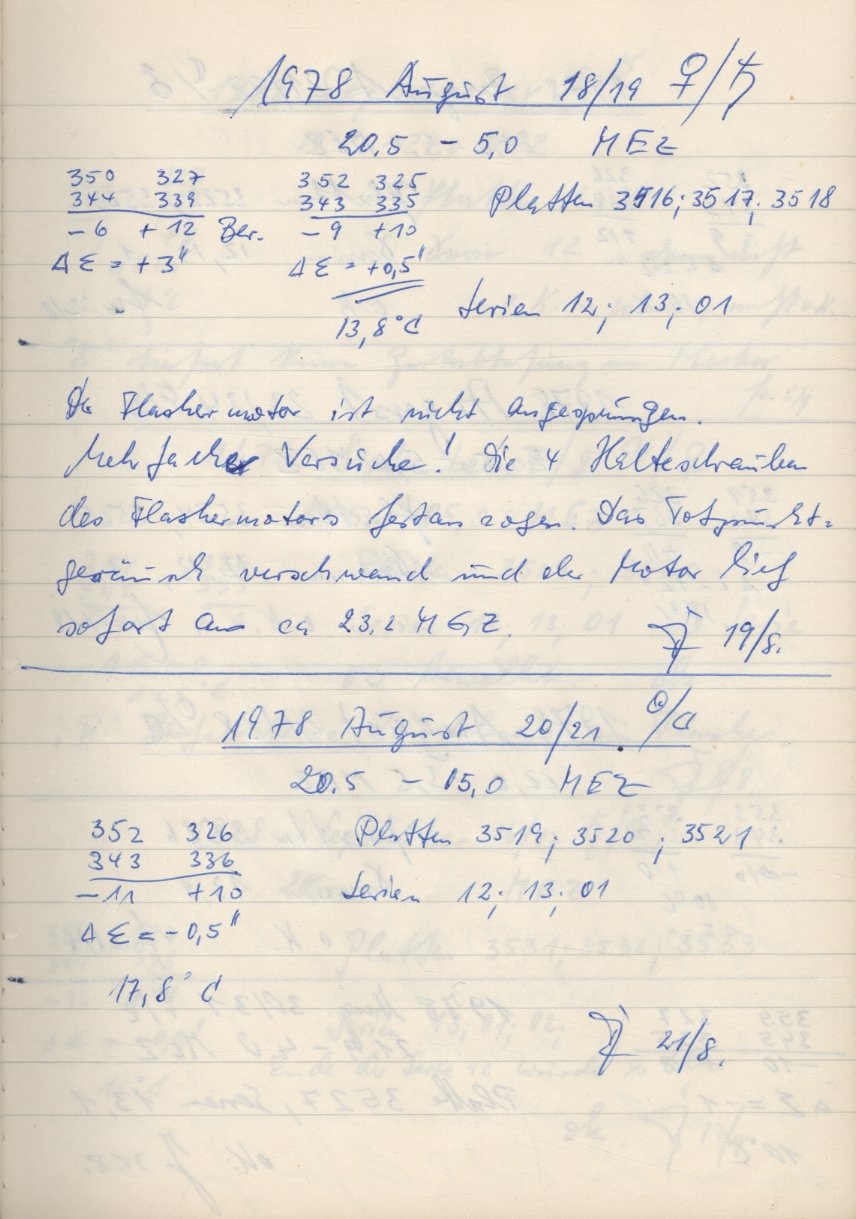 1978 August 18/19 ♀/♄
20.5 - 5,0 MEZ
350 327 352 325
344 339 343 335 Platten 3516; 3517; 3518
-6 +12 Ber. -9 +10
Δε = +3" Δε = +0,5"
13,8°C Serien 12; 13; 01
Der Flashermotor ist nicht angesprungen.
Mehrfache Versuche! Die 4 Halteschrauben
des Flashermotors festan zogen. Das Totpunkt-
geräusch verschwand und der Motor lief
sofort an ca 23.2 MEZ.
19/8.
1978 August 20/21 ☉/☾
20.5 - 15,0 MEZ
352 326 Platten 3519; 3520; 3521
343 336
-11 +10 Serien 12; 13; 01
Δε = -0,5"
17,8° C
21/8.